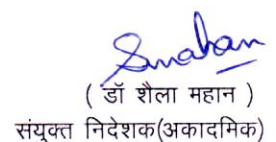 Smahan
( डॉ शैला महान )
संयुक्त निदेशक(अकादमिक)